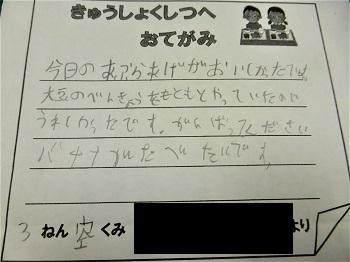 きゅうしょくしつへ
おてがみ
今日のあぶらあげがおいしかったです。
大豆のべんきょうをもともとやっていたのに
うれしかったです。がんばってください
バナナがたべたいです。
3 ねん 空 くみ より